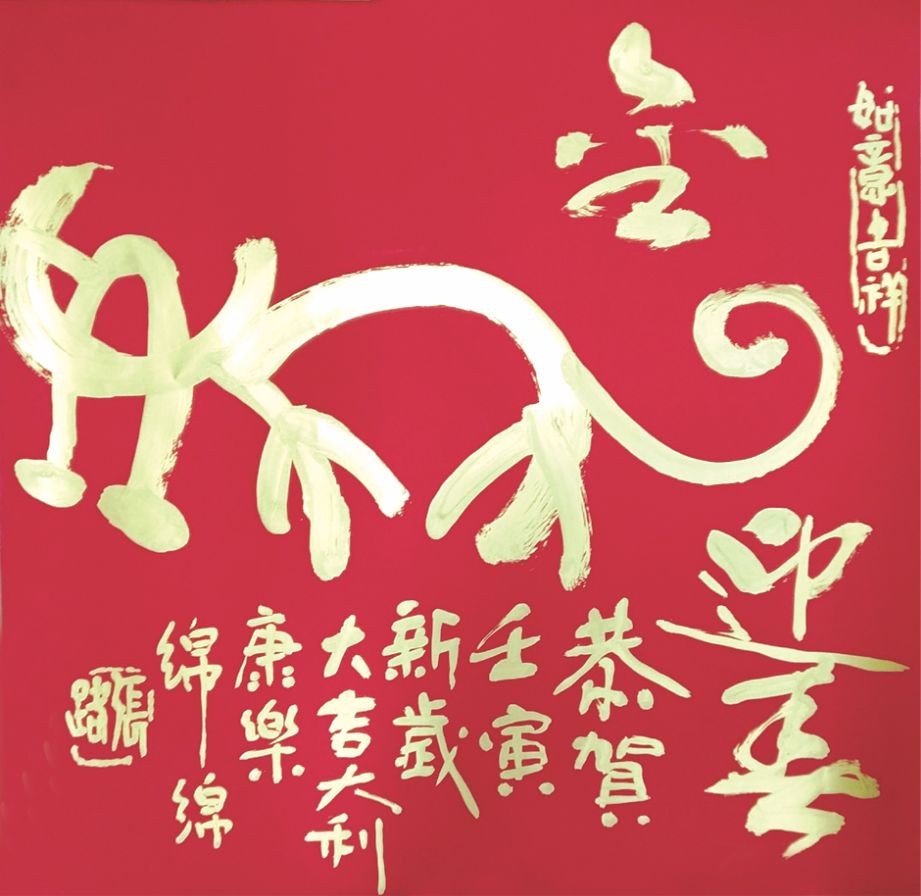 如意吉祥
金虎
迎春
恭賀
壬寅
新歲
大吉大利
康樂
綿綿